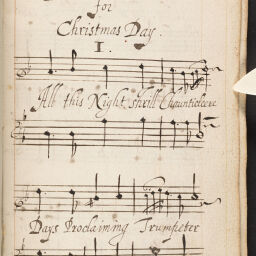 for
Christmas Day.
I.
All this Night shrill Chaunticleere
Days Proclaiming Trumpeter